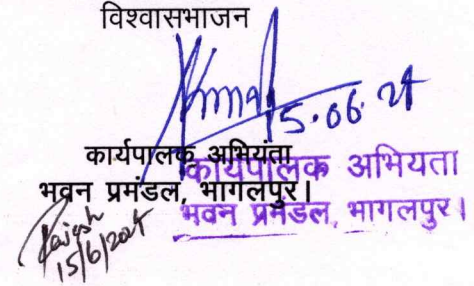 विश्वासभाजन
5.06.24
कार्यपालक अभियंता
भवन प्रमंडल, भागलपुर।
कार्यपालक अभियता
भवन प्रमंडल, भागलपुर।
Rajesh
15/6/2024